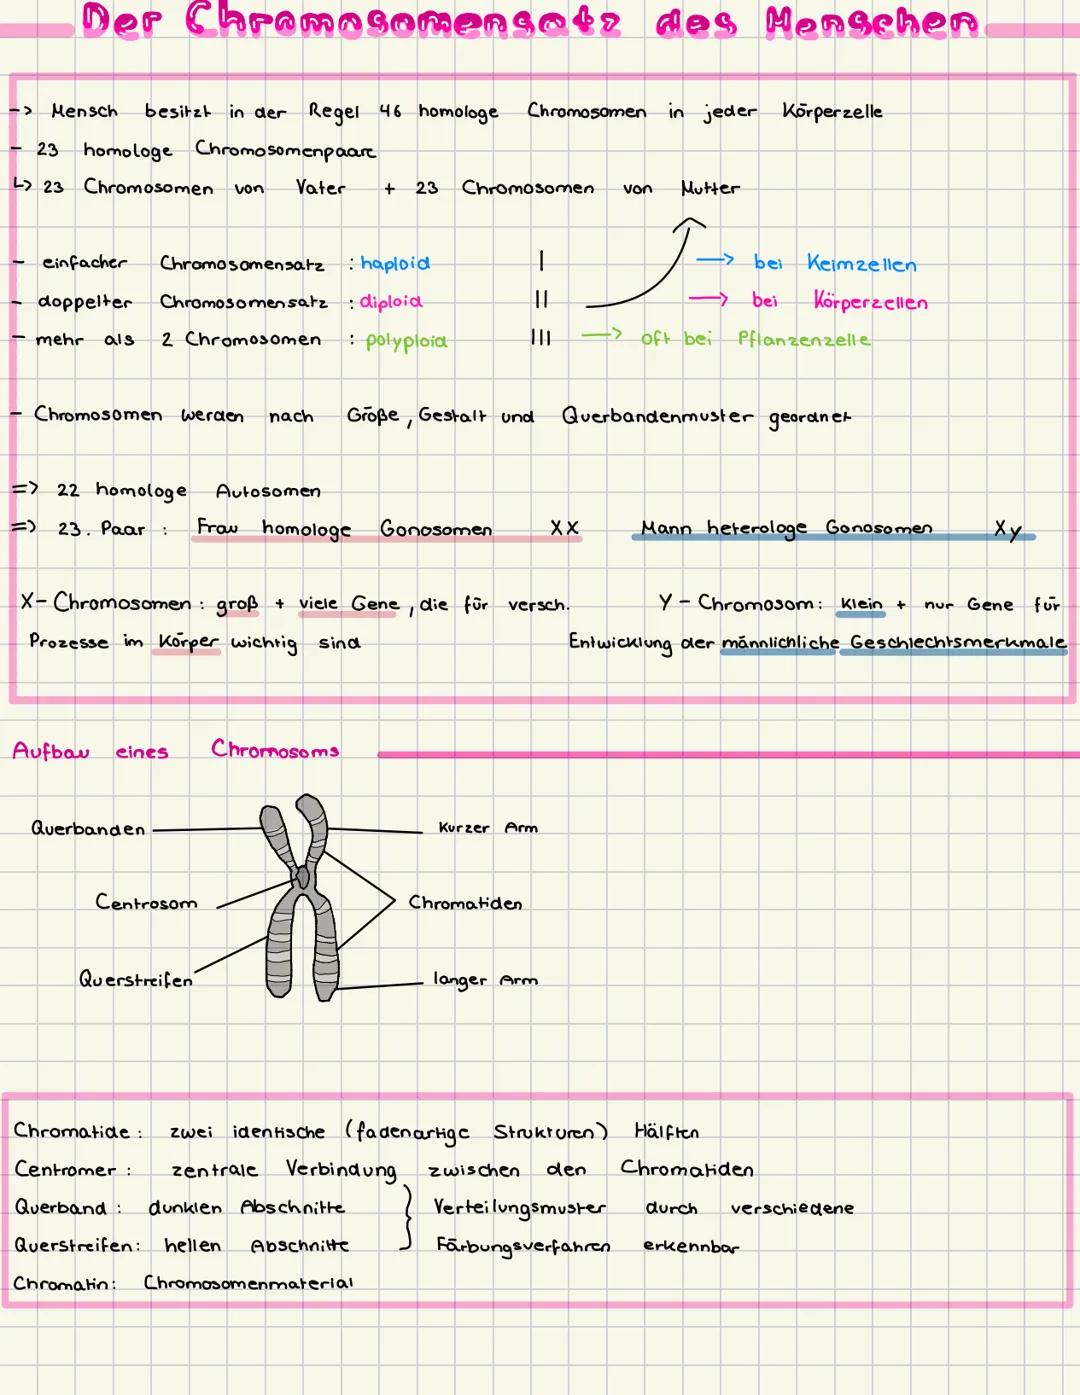 Der Chromosomensatz des Menschen
-> Mensch besitzt in der Regel 46 homologe Chromosomen in jeder Körperzelle
- 23 homologe Chromosomenpaare
↳ 23 Chromosomen von Vater + 23 Chromosomen von Mutter
- einfacher Chromosomensatz : haploid | → bei Keimzellen
- doppelter Chromosomensatz : diploid || → bei Körperzellen
- mehr als 2 Chromosomen : polyploid ||| → oft bei Pflanzenzelle
- Chromosomen werden nach Größe, Gestalt und Querbandenmuster geordnet
=> 22 homologe Autosomen
=> 23. Paar : Frau homologe Gonosomen XX Mann heterologe Gonosomen Xy
X-Chromosomen : groß + viele Gene, die für versch.
Prozesse im Körper wichtig sind
Y-Chromosom: klein + nur Gene für
Entwicklung der männlichliche Geschlechtsmerkmale
Aufbau eines Chromosoms
Querbanden
Kurzer Arm
Centrosom
Chromatiden
Querstreifen
langer Arm
Chromatide : zwei identische (fadenartige Strukturen) Hälften
Centromer : zentrale Verbindung zwischen den Chromatiden
Querband : dunklen Abschnitte } Verteilungsmuster durch verschiedene
Querstreifen: hellen Abschnitte Färbungsverfahren erkennbar
Chromatin: Chromosomenmaterial